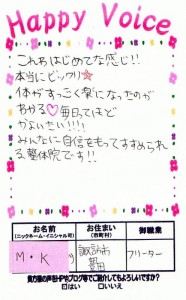 Happy Voice
これははじめてな感じ!!
本当にビックリ☆
体がすっごく楽になったのが
わかる♡毎日ってほど
かよいたい!!!!
みんなに自信をもってすすめられ
る整体院です!!
お名前
(ニックネーム・イニシャル可)
お住まい
(市町村)
御職業
M・K
諏訪市
豊田
フリーター
貴方様の声をHPやブログ等でご紹介してもよろしいですか?
☑はい □いいえ